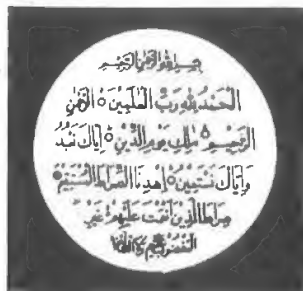 بسم الله الرحمن الرحيم
الحمد لله رب العلمين الرحمن
الرحيم ملك يوم الدين إياك نعبد
وإياك نستعين اهدنا الصراط المستقيم
صراط الذين أنعمت عليهم غير
المغضوب عليهم ولا الضالين